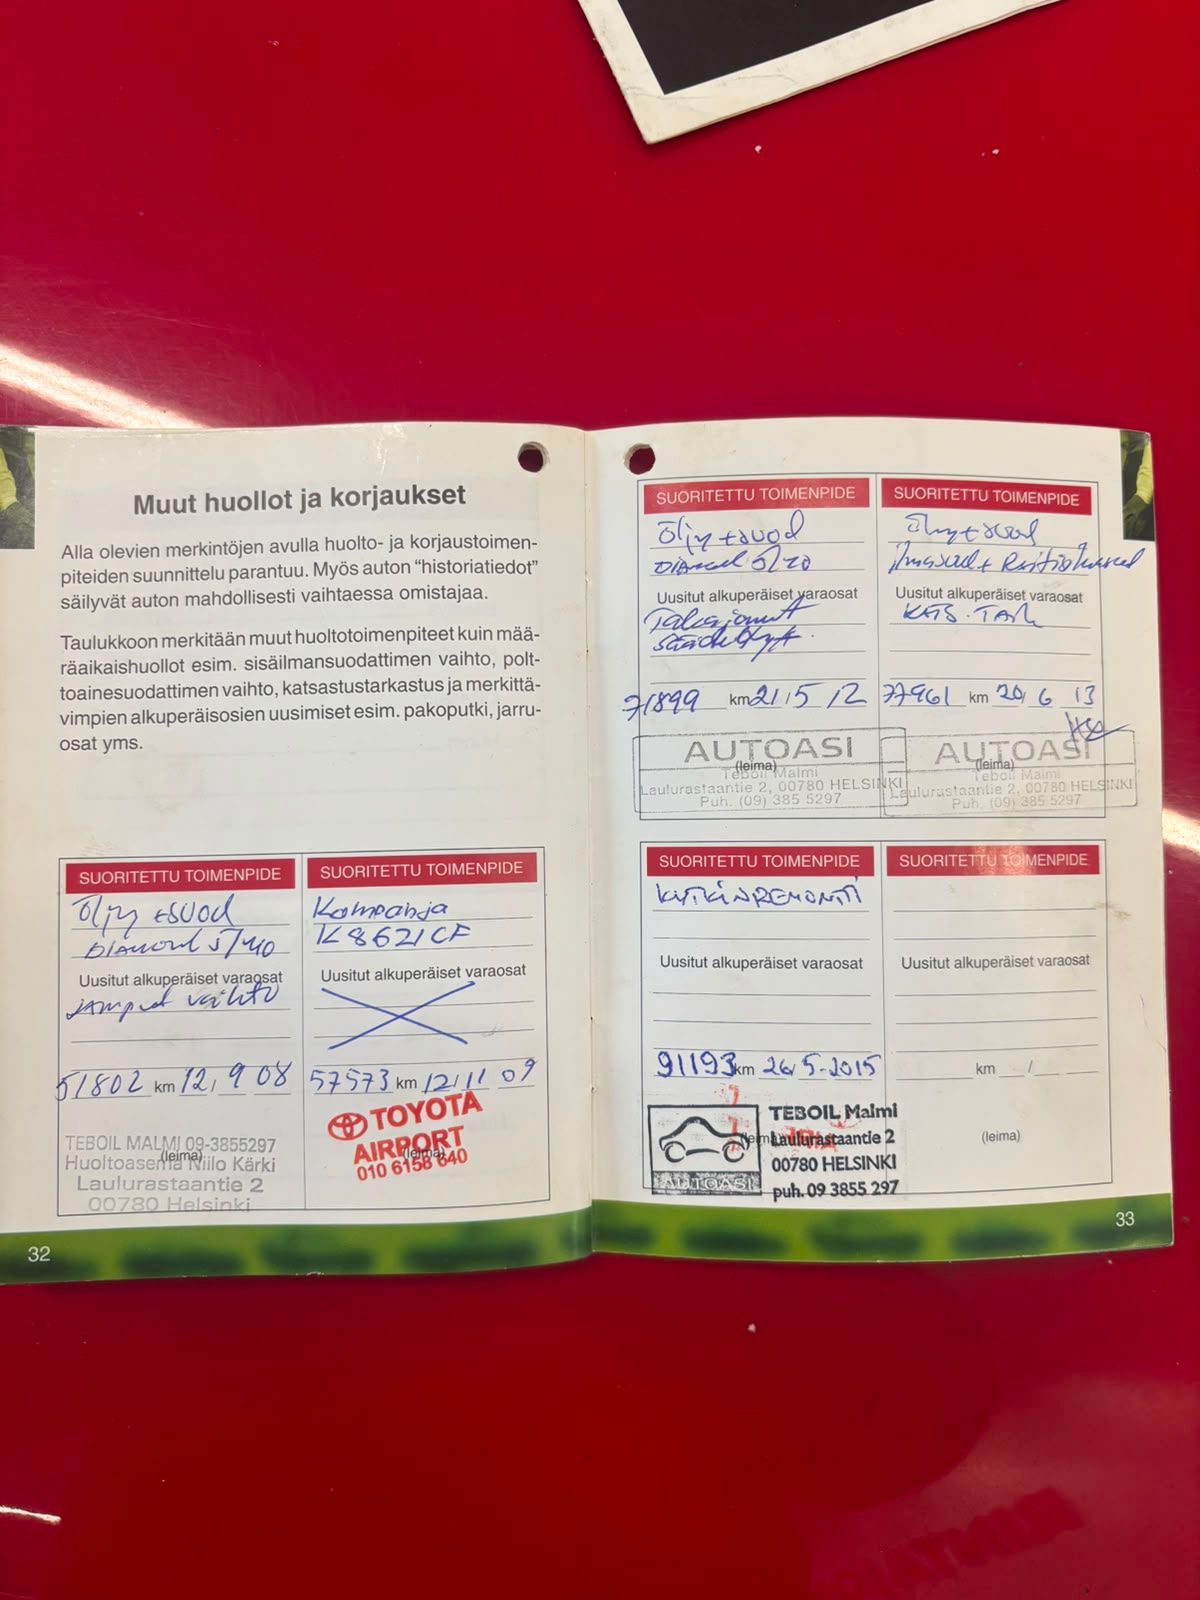 Muut huollot ja korjaukset
Alla olevien merkintöjen avulla huolto- ja korjaustoimen-
piteiden suunnittelu parantuu. Myös auton “historiatiedot”
säilyvät auton mahdollisesti vaihtaessa omistajaa.
Taulukkoon merkitään muut huoltotoimenpiteet kuin mää-
räaikaishuollot esim. sisäilmansuodattimen vaihto, polt-
toainesuodattimen vaihto, katsastustarkastus ja merkittä-
vimpien alkuperäisosien uusimiset esim. pakoputki, jarru-
osat yms.
SUORITETTU TOIMENPIDE
Öljy+suod
DIAMOND 5/40
Uusitut alkuperäiset varaosat
vaihto
51802 km 12, 9 08
(leima)
TEBOIL MALMI 09-3855297
Huoltoasema Niilo Kärki
Laulurastaantie 2
00780 Helsinki
SUORITETTU TOIMENPIDE
Kampanja
K8621CF
Uusitut alkuperäiset varaosat
57573 km 12/11 09
(leima)
TOYOTA
AIRPORT
010 6158 640
32
SUORITETTU TOIMENPIDE
Öljy+suod
Uusitut alkuperäiset varaosat
71899 km 21/5 12
(leima)
AUTOASI
Teboil Malmi
Laulurastaantie 2, 00780 HELSINKI
Puh. (09) 385 5297
SUORITETTU TOIMENPIDE
Öljy+suod
Uusitut alkuperäiset varaosat
77961 km 20/ 6 13
(leima)
AUTOASI
Teboil Malmi
Laulurastaantie 2, 00780 HELSINKI
Puh. (09) 385 5297
SUORITETTU TOIMENPIDE
KYTKINREMONTTI
Uusitut alkuperäiset varaosat
91193 km 26/5-2015
(leima)
AUTOASI
TEBOIL Malmi
Laulurastaantie 2
00780 HELSINKI
puh. 09 3855 297
SUORITETTU TOIMENPIDE
Uusitut alkuperäiset varaosat
km /
(leima)
33